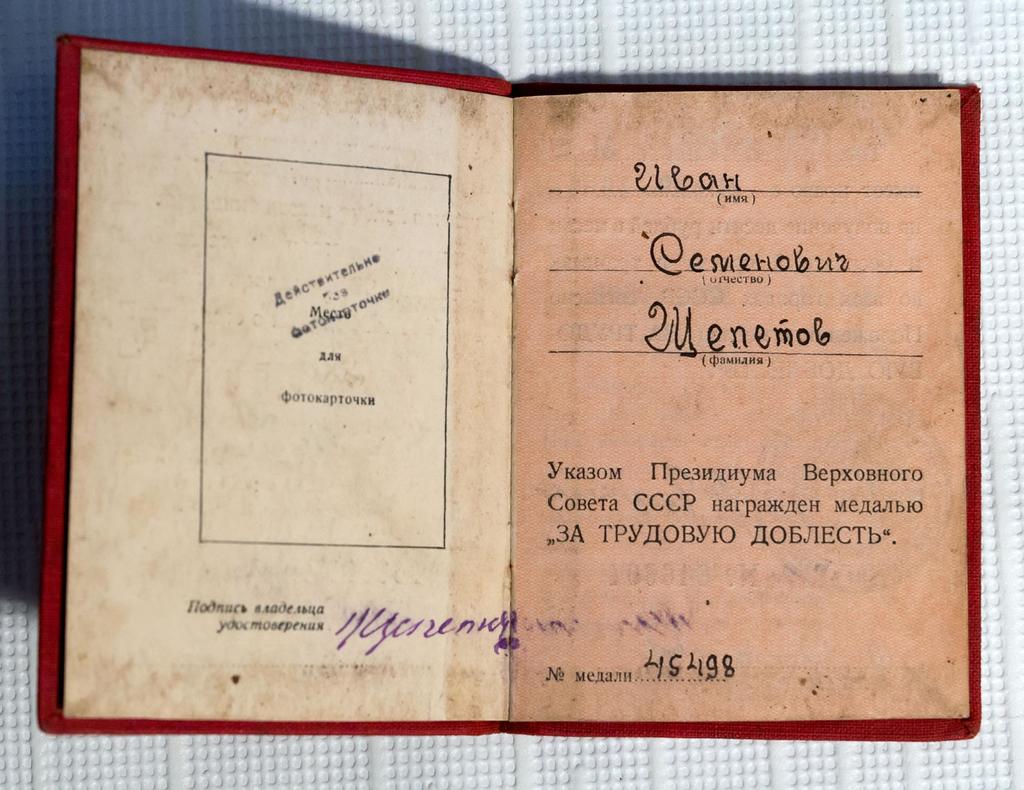 Действительно
без
фотокарточки
Место
для
фотокарточки
Подпись владельца
удостоверения
Иван
(имя)
Семенович
(отчество)
Щепетов
(фамилия)
Указом Президиума Верховного
Совета СССР награжден медалью
„ЗА ТРУДОВУЮ ДОБЛЕСТЬ“.
№ медали 45498